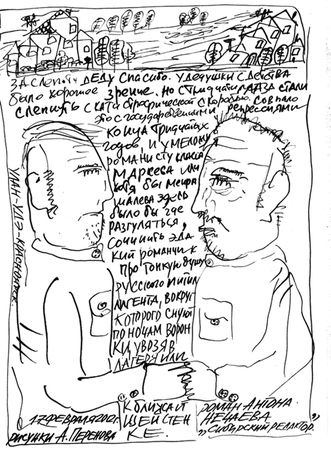 ЗА СЛЕПОТУ ДЕДУ СПАСИБО. У ДЕДУШКИ С ДЕТСТВА
БЫЛО ХОРОШЕЕ ЗРЕНИЕ. НО В ТРИДЦАТЫЕ ГЛАЗА СТАЛИ
СЛЕПИТЬ С КАТАСТРОФИЧЕСКОЙ СКОРОСТЬЮ. СОВПАЛО
ЭТО С ГОСУДАРСТВЕННЫМИ РЕПРЕССИЯМИ
КОНЦА ТРИДЦАТЫХ
ГОДОВ, И УМЕЛОМУ
РОМАНИСТУ КЛАССА
МАРКЕСА ИЛИ
ХОТЯ БЫ
ЗДЕСЬ
БЫЛО БЫ ГДЕ
РАЗГУЛЯТЬСЯ,
СОЧИНИТЬ ЭДА
КИЙ РОМАНЧИК
ПРО ТОНКУЮ ДУШУ
РУССКОГО ИНТЕЛ
ЛИГЕНТА, ВОКРУГ
КОТОРОГО СНУЮТ
ПО НОЧАМ ВОРОН
КИ УВОЗЯ В
ЛАГЕРЯ ИЛИ
К БЛИЖАЙ
ШЕЙ СТЕН
КЕ.
УЛАН-УДЭ
17 ФЕВРАЛЯ 2021.
РИСУНКИ А.
РОМАН АНТОНА
НЕЧАЕВА
„СИБИРСКИЙ РЕДАКТОР."